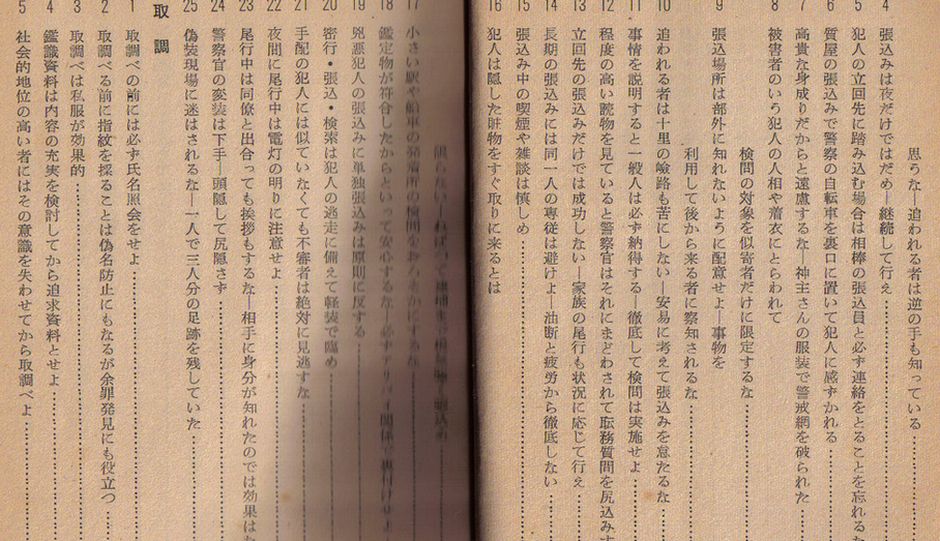 思うな―追われる者は逆の手も知っている………
4 張込みは夜だけではだめ―継続して行え………
5 犯人の立回先に踏み込む場合は相棒の張込員と必ず連絡をとることを忘れるな
6 質屋の張込みで警察の自転車を裏口に置いて犯人に感ずかれる………
7 高貴な身成りだからと遠慮するな―神主さんの服装で警戒網を破られた………
8 被害者のいう犯人の人相や着衣にとらわれて
検問の対象を似寄者だけに限定するな………
9 張込場所は部外に知れないように配意せよ―事物を
利用して後から来る者に察知されるな………
10 追われる者は十里の嶮路も苦にしない―安易に考えて張込みを怠たるな………
11 事情を説明すると一般人は必ず納得する―徹底して検問は実施せよ………
12 程度の高い読物を見ていると警察官はそれにまどわされて職務質問を尻込みす
13 立回先の張込みだけでは成功しない―家族の尾行も状況に応じて行え………
14 長期の張込みには同一人の専従は避けよ―油断と疲労から徹底しない………
15 張込み中の喫煙や雑談は慎しめ………
16 犯人は隠した賍物をすぐ取りに来るとは
限らない―
17 小さい駅や船車の発着所の検問をおろそかにするな………
18 鑑定物が符合したからといって安心するな―必ずアリバイ関係で裏付けせよ
19 兇悪犯人の張込みに単独張込みは原則に反する………
20 密行・張込・検索は犯人の逃走に備えて軽装で臨め………
21 手配の犯人には似ていなくても不審者は絶対に見逃すな………
22 夜間に尾行中は電灯の明りに注意せよ………
23 尾行中は同僚と出合っても挨拶もするな―相手に身分が知れたのでは効果はな
24 警察官の変装は下手―頭隠して尻隠さず………
25 偽装現場に迷はされるな―一人で三人分の足跡を残していた………
取調
1 取調べの前には必ず氏名照会をせよ………
2 取調べる前に指紋を採ることは偽名防止にもなるが余罪発見にも役立つ………
3 取調べは私服が効果的………
4 鑑識資料は内容の充実を検討してから追求資料とせよ………
5 社会的地位の高い者にはその意識を失わせてから取調べよ………